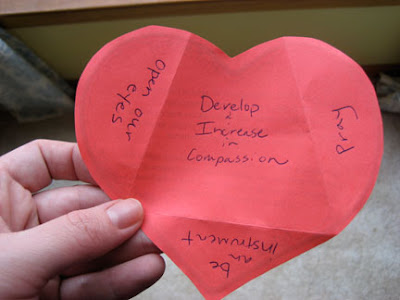 open our
eyes
Develop
&
Increase
in
Compassion
Pray
be
an
instrument